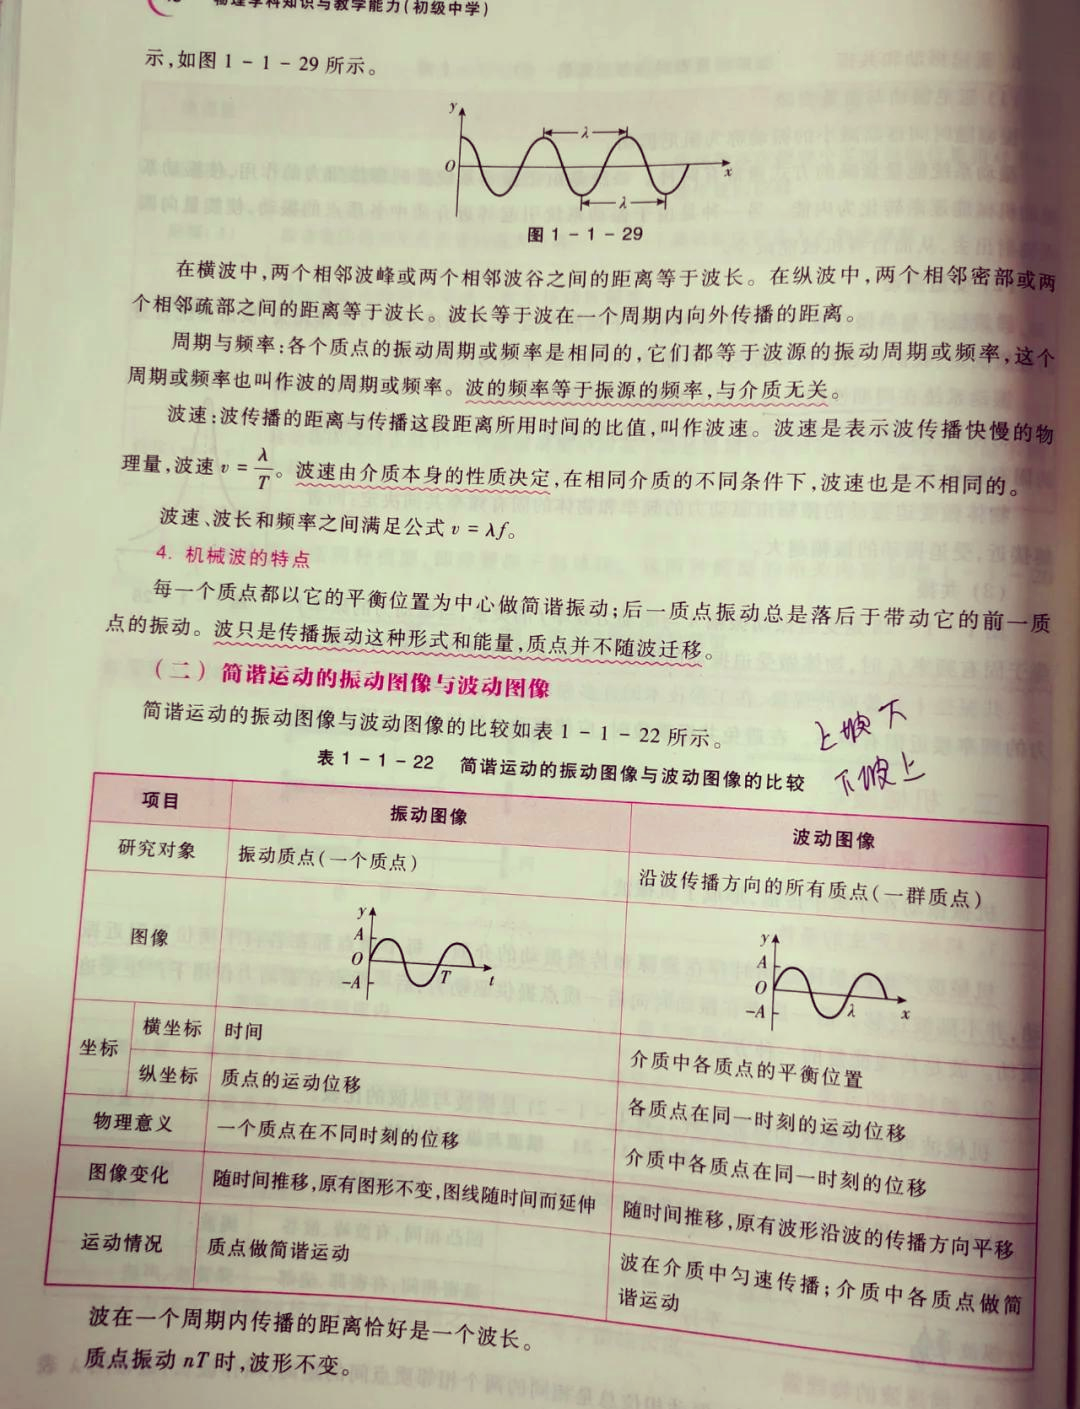 物理学科知识与教学能力(初级中学)
示,如图1-1-29所示。
y
λ
O
x
λ
图1-1-29
在横波中,两个相邻波峰或两个相邻波谷之间的距离等于波长。在纵波中,两个相邻密部或两
个相邻疏部之间的距离等于波长。波长等于波在一个周期内向外传播的距离。
周期与频率:各个质点的振动周期或频率是相同的,它们都等于波源的振动周期或频率,这个
周期或频率也叫作波的周期或频率。波的频率等于振源的频率,与介质无关。
波速:波传播的距离与传播这段距离所用时间的比值,叫作波速。波速是表示波传播快慢的物
理量,波速 v = λ/T。波速由介质本身的性质决定,在相同介质的不同条件下,波速也是不相同的。
波速、波长和频率之间满足公式 v = λf。
4. 机械波的特点
每一个质点都以它的平衡位置为中心做简谐振动;后一质点振动总是落后于带动它的前一质
点的振动。波只是传播振动这种形式和能量,质点并不随波迁移。
(二)简谐运动的振动图像与波动图像
简谐运动的振动图像与波动图像的比较如表1-1-22所示。
上坡下
下坡上
表1-1-22 简谐运动的振动图像与波动图像的比较
项目 振动图像 波动图像
研究对象 振动质点(一个质点) 沿波传播方向的所有质点(一群质点)
图像
y
A
O
-A
T
t
y
A
O
-A
λ
x
坐标
横坐标 时间 介质中各质点的平衡位置
纵坐标 质点的运动位移 各质点在同一时刻的运动位移
物理意义 一个质点在不同时刻的位移 介质中各质点在同一时刻的位移
图像变化 随时间推移,原有图形不变,图线随时间而延伸 随时间推移,原有波形沿波的传播方向平移
运动情况 质点做简谐运动 波在介质中匀速传播;介质中各质点做简
谐运动
波在一个周期内传播的距离恰好是一个波长。
质点振动 nT 时,波形不变。